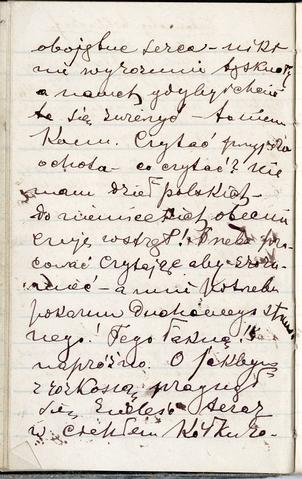 obojętne serca – nikt
nie wyrozumie tęsknoty
a nawet gdybym chciał
to się zwierzyć – to niem
Komu. Czytać przyszła
ochota – co czytać? Nie
mam dzieł polskich –
do niemieckich obecnie
czuję wstręt! Trzeba pra
cować czytając aby zrozu
mieć – a mnie potrzeba
pokarmu duchowego
nego! Tego łaknę!
napróżno. O jakbym
z rozkoszą pragnął
się teraz
w ciepłem